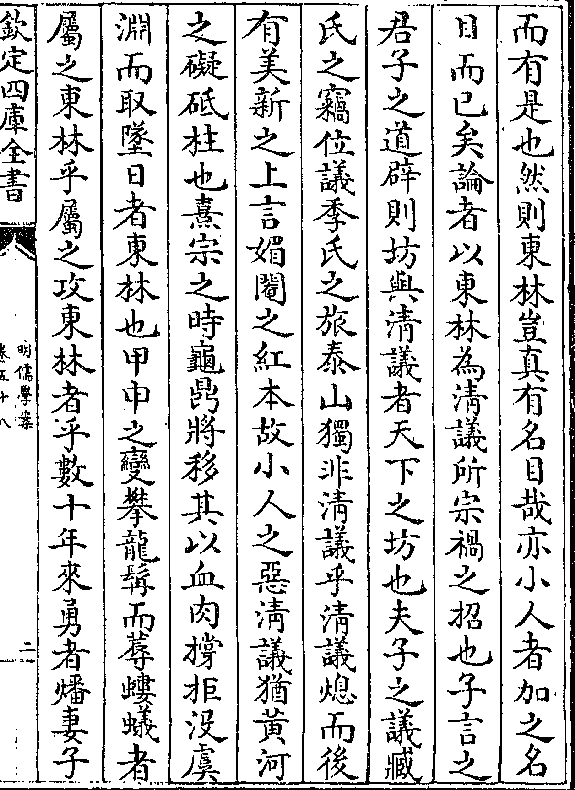 而有是也然則東林豈真有名目哉亦小人者加之名
目而已矣論者以東林為清議所宗禍之招也子言之
君子之道辟則坊與清議者天下之坊也夫子之議臧
氏之竊位議季氏之旅泰山獨非清議乎清議熄而後
有美新之上言媚閹之紅本故小人之惡清議猶黃河
之礙砥柱也熹宗之時龜鼎將移其以血肉撐拒沒虞
淵而取墜日者東林也甲申之變攀龍髯而蓐螻蟻者
屬之東林乎屬之攻東林者乎數十年來勇者燔妻子
欽定四庫全書
明儒學案
卷五十八
二